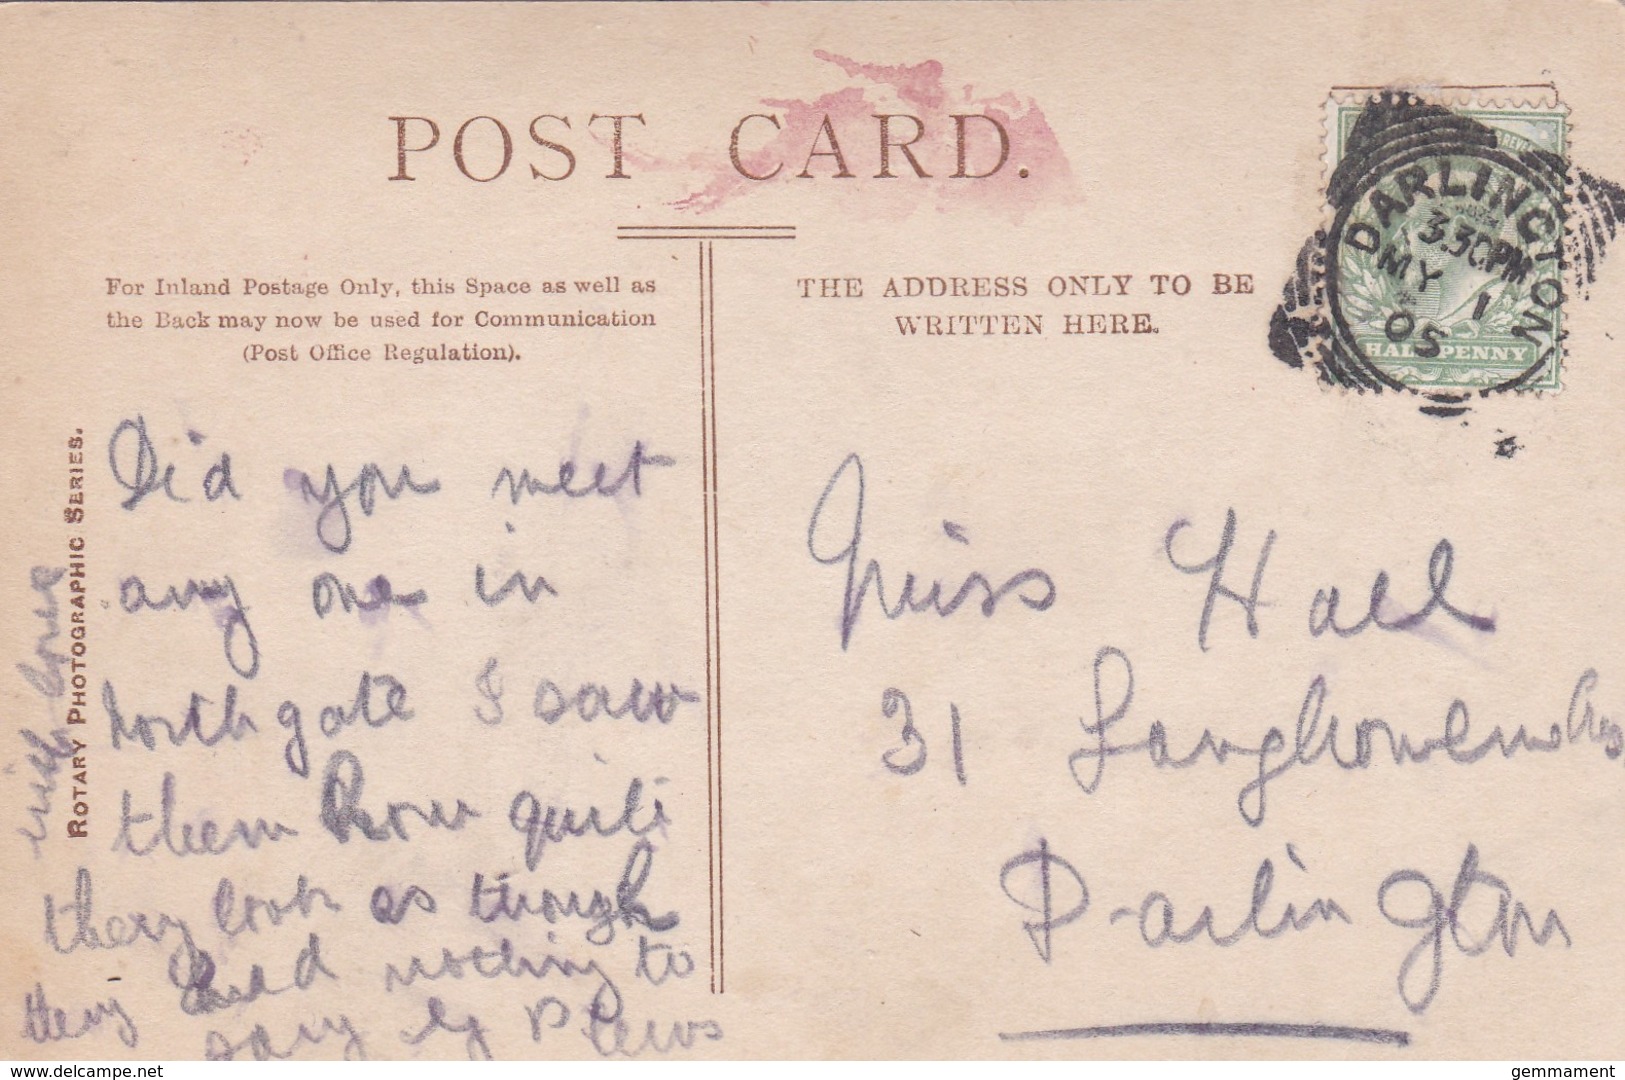 POST CARD.
For Inland Postage Only, this Space as well as
the Back may now be used for Communication
(Post Office Regulation).
THE ADDRESS ONLY TO BE
WRITTEN HERE.
DARLINGTON
3.30PM
MY 1
05
HALFPENNY
ROTARY PHOTOGRAPHIC SERIES.
Did you meet
any one in
northgate I saw
them quite
they look as though
they had nothing to
say
with love
Miss Hall
31
Darlington
delcampe.net
gemmament